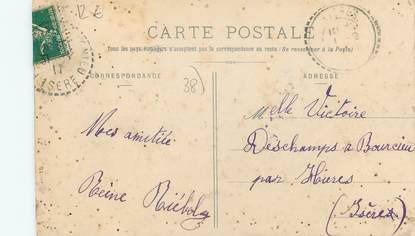 12 E
CARTE POSTALE
Tous les pays étrangers n'acceptent pas la correspondance au recto (Se renseigner à la Poste)
CORRESPONDANCE
ADRESSE
38
Melle Victoire
Deschamps a Bourcieu
par Hières
(Isère)
Mes amitiés
Reine
17
ISERE